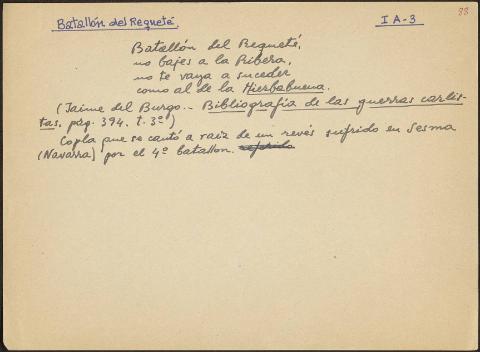 Batallón del Requeté. I A-3 88
Batallón del Requeté,
no bajes a la Ribera,
no te vaya a suceder
como al de la Hierbabuena.
(Jaime del Burgo.- Bibliografía de las guerras carlis-
tas, pág. 394. t. 3º)
Copla que se cantó a raiz de un revés sufrido en Sesma
(Navarra) por el 4º batallon. referido